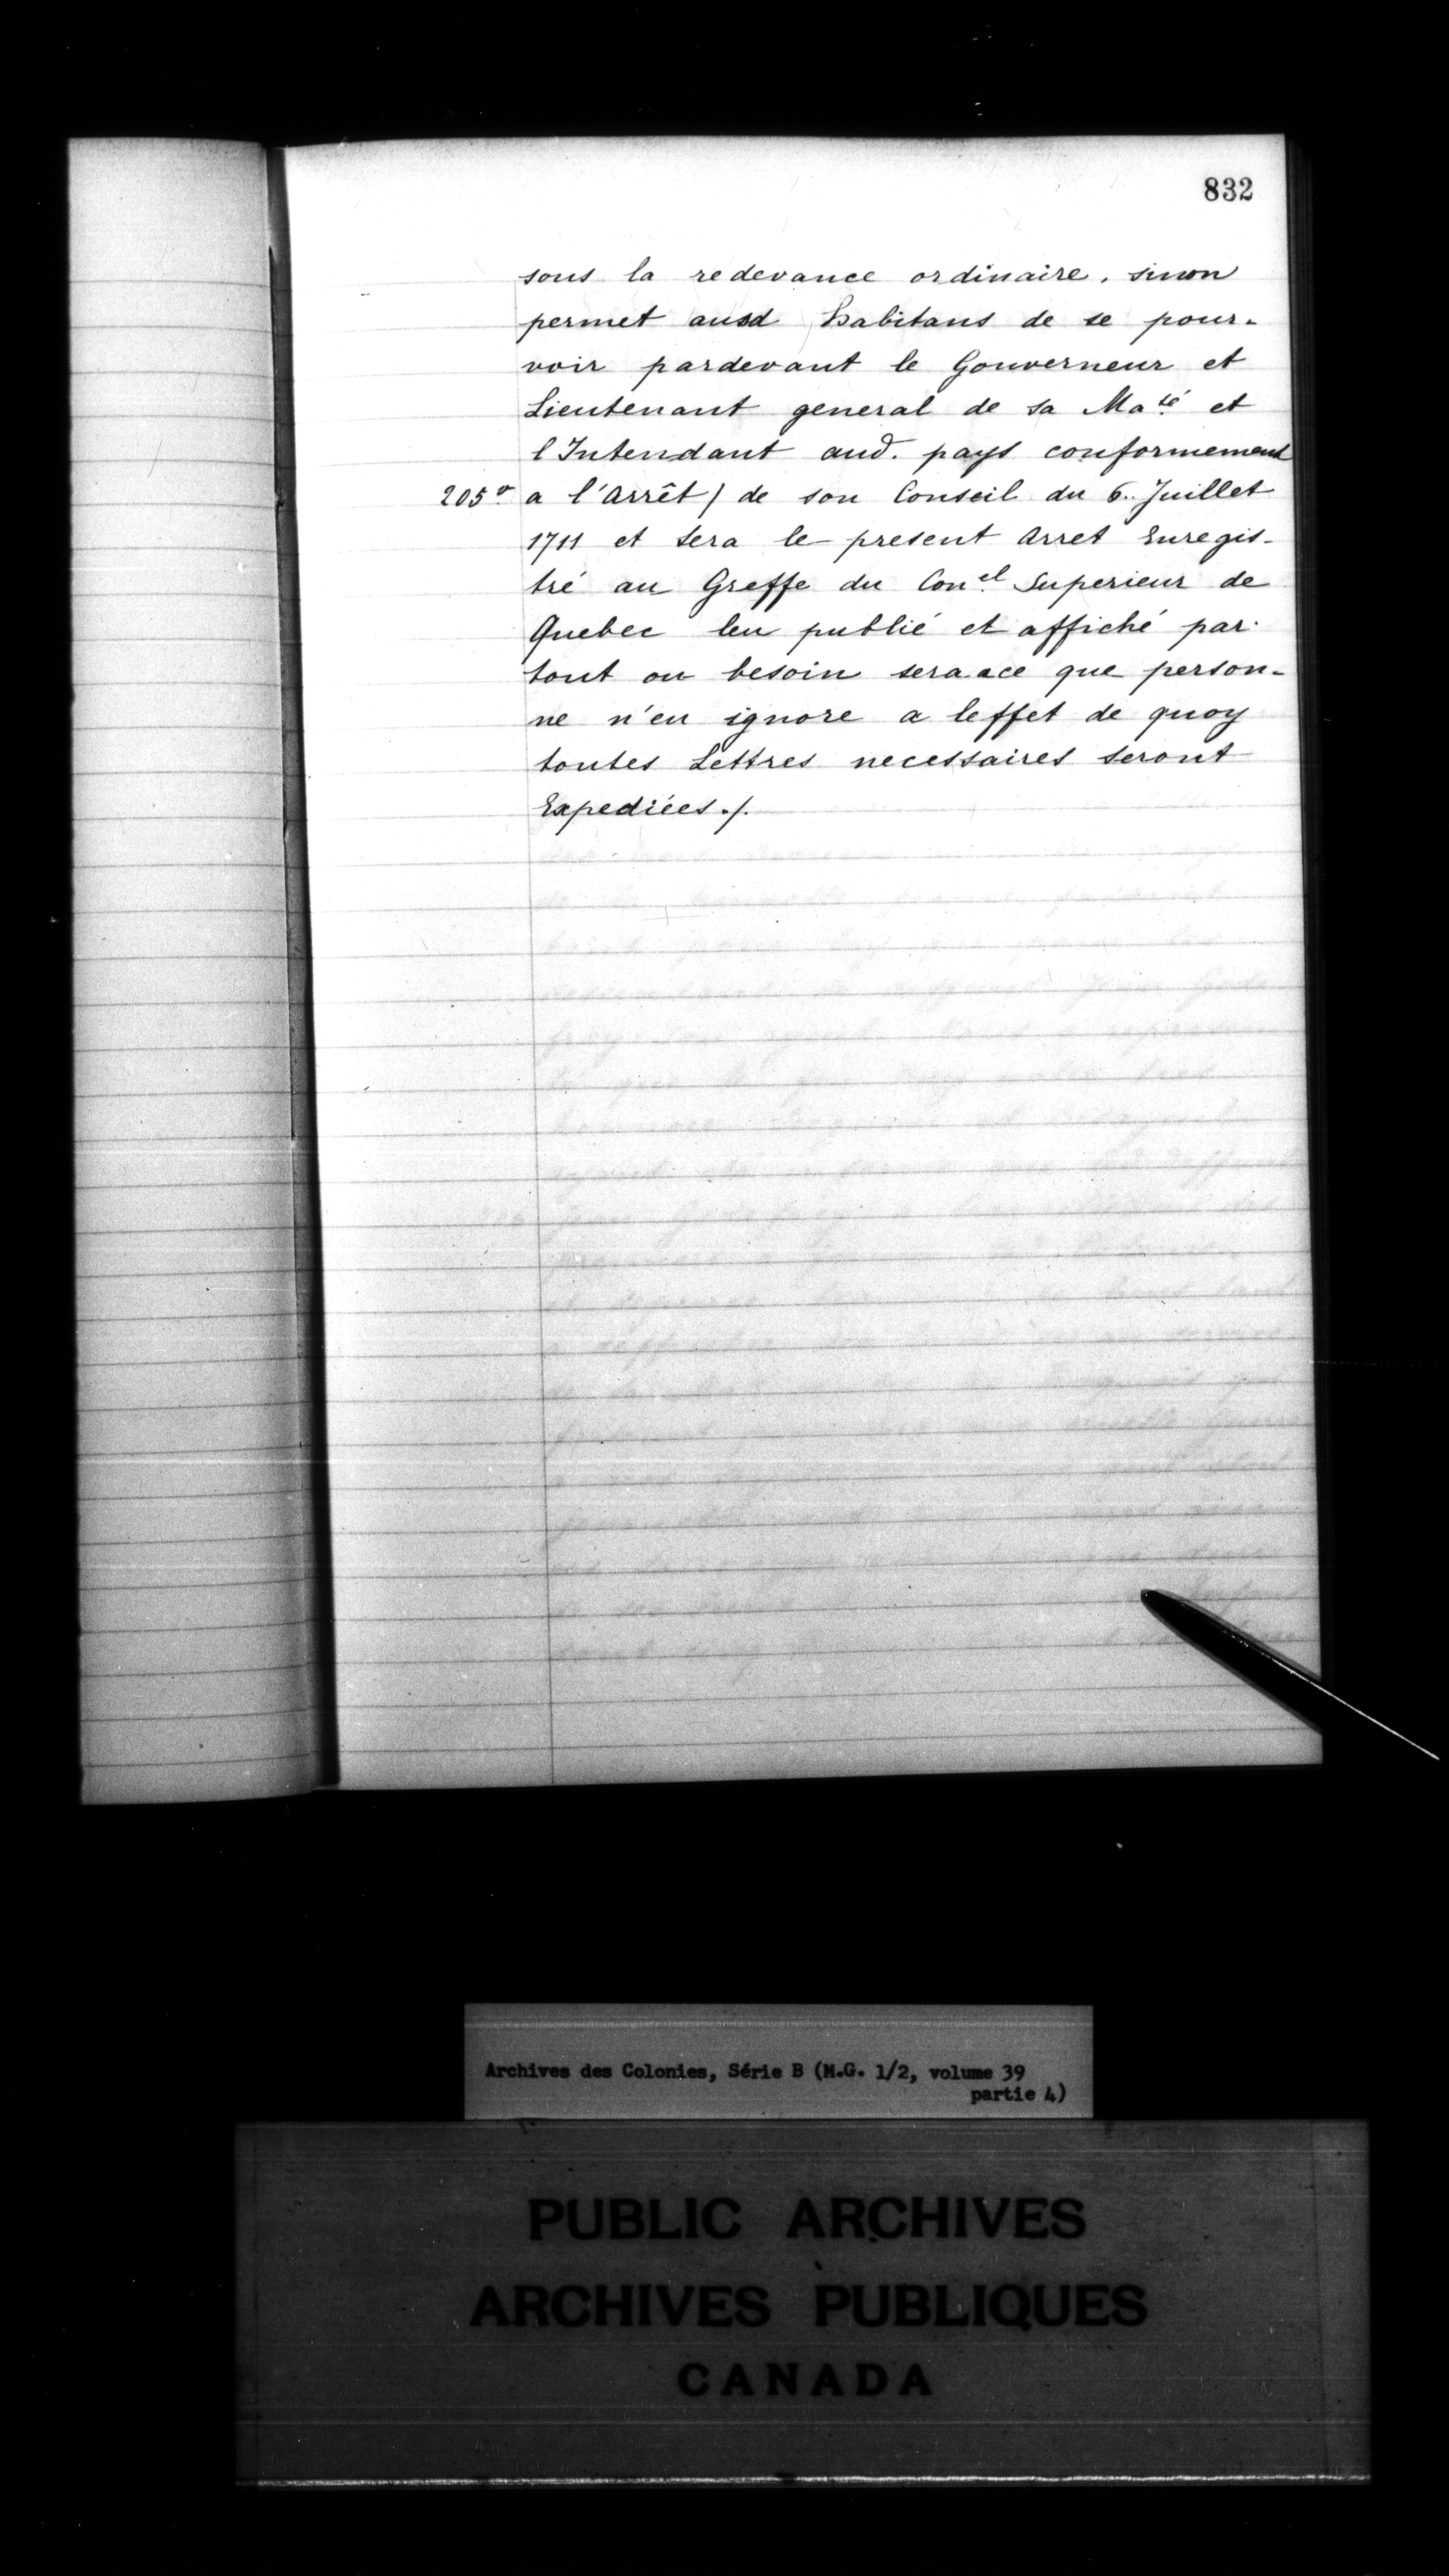 832
sous la redevance ordinaire, sinon
permet ausd habitans de se pour-
voir pardevant le Gouverneur et
Lieutenant general de sa Ma.té et
l'Intendant aud. pays conformement
205 v a l'Arrêt / de son Conseil du 6. Juillet
1711 et sera le present Arret Enregis-
tré au Greffe du Con.el Superieur de
Quebec leu publié et affiché par-
tout ou besoin sera ace que person-
ne n'en ignore a leffet de quoy
toutes Lettres necessaires seront
Expediées ./.
Archives des Colonies, Série B (M.G. 1/2, volume 39
partie 4)
PUBLIC ARCHIVES
ARCHIVES PUBLIQUES
CANADA